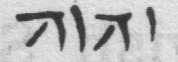 יהוה